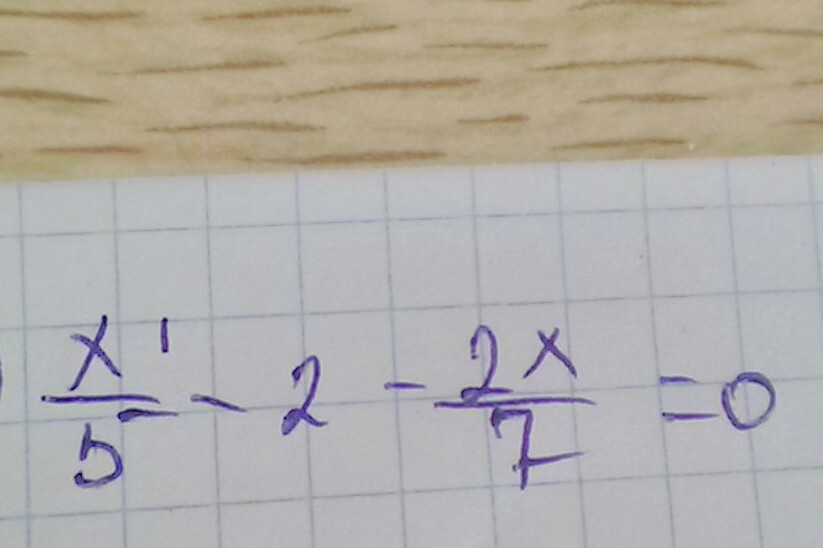 x'/5 - 2 - 2x/7 = 0